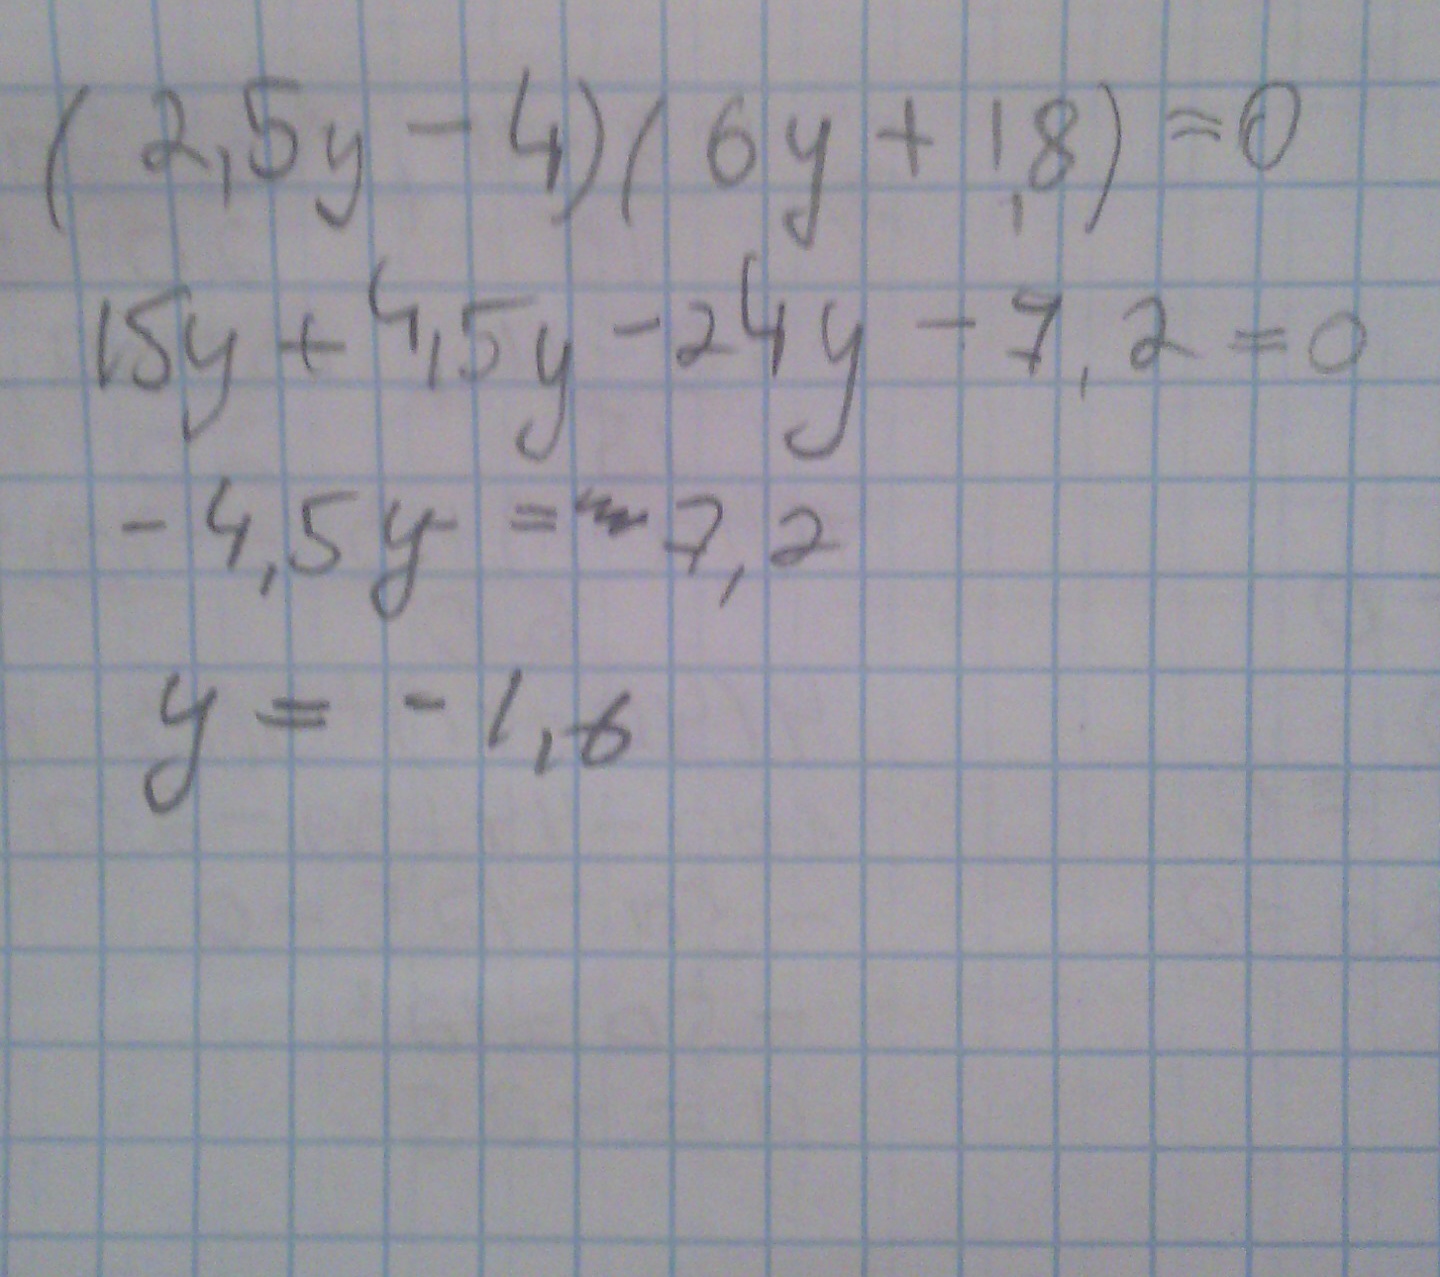 (2,5y - 4)(6y + 1,8) = 0
15y + 4,5y - 24y - 7,2 = 0
- 4,5y = 7,2
y = - 1,6